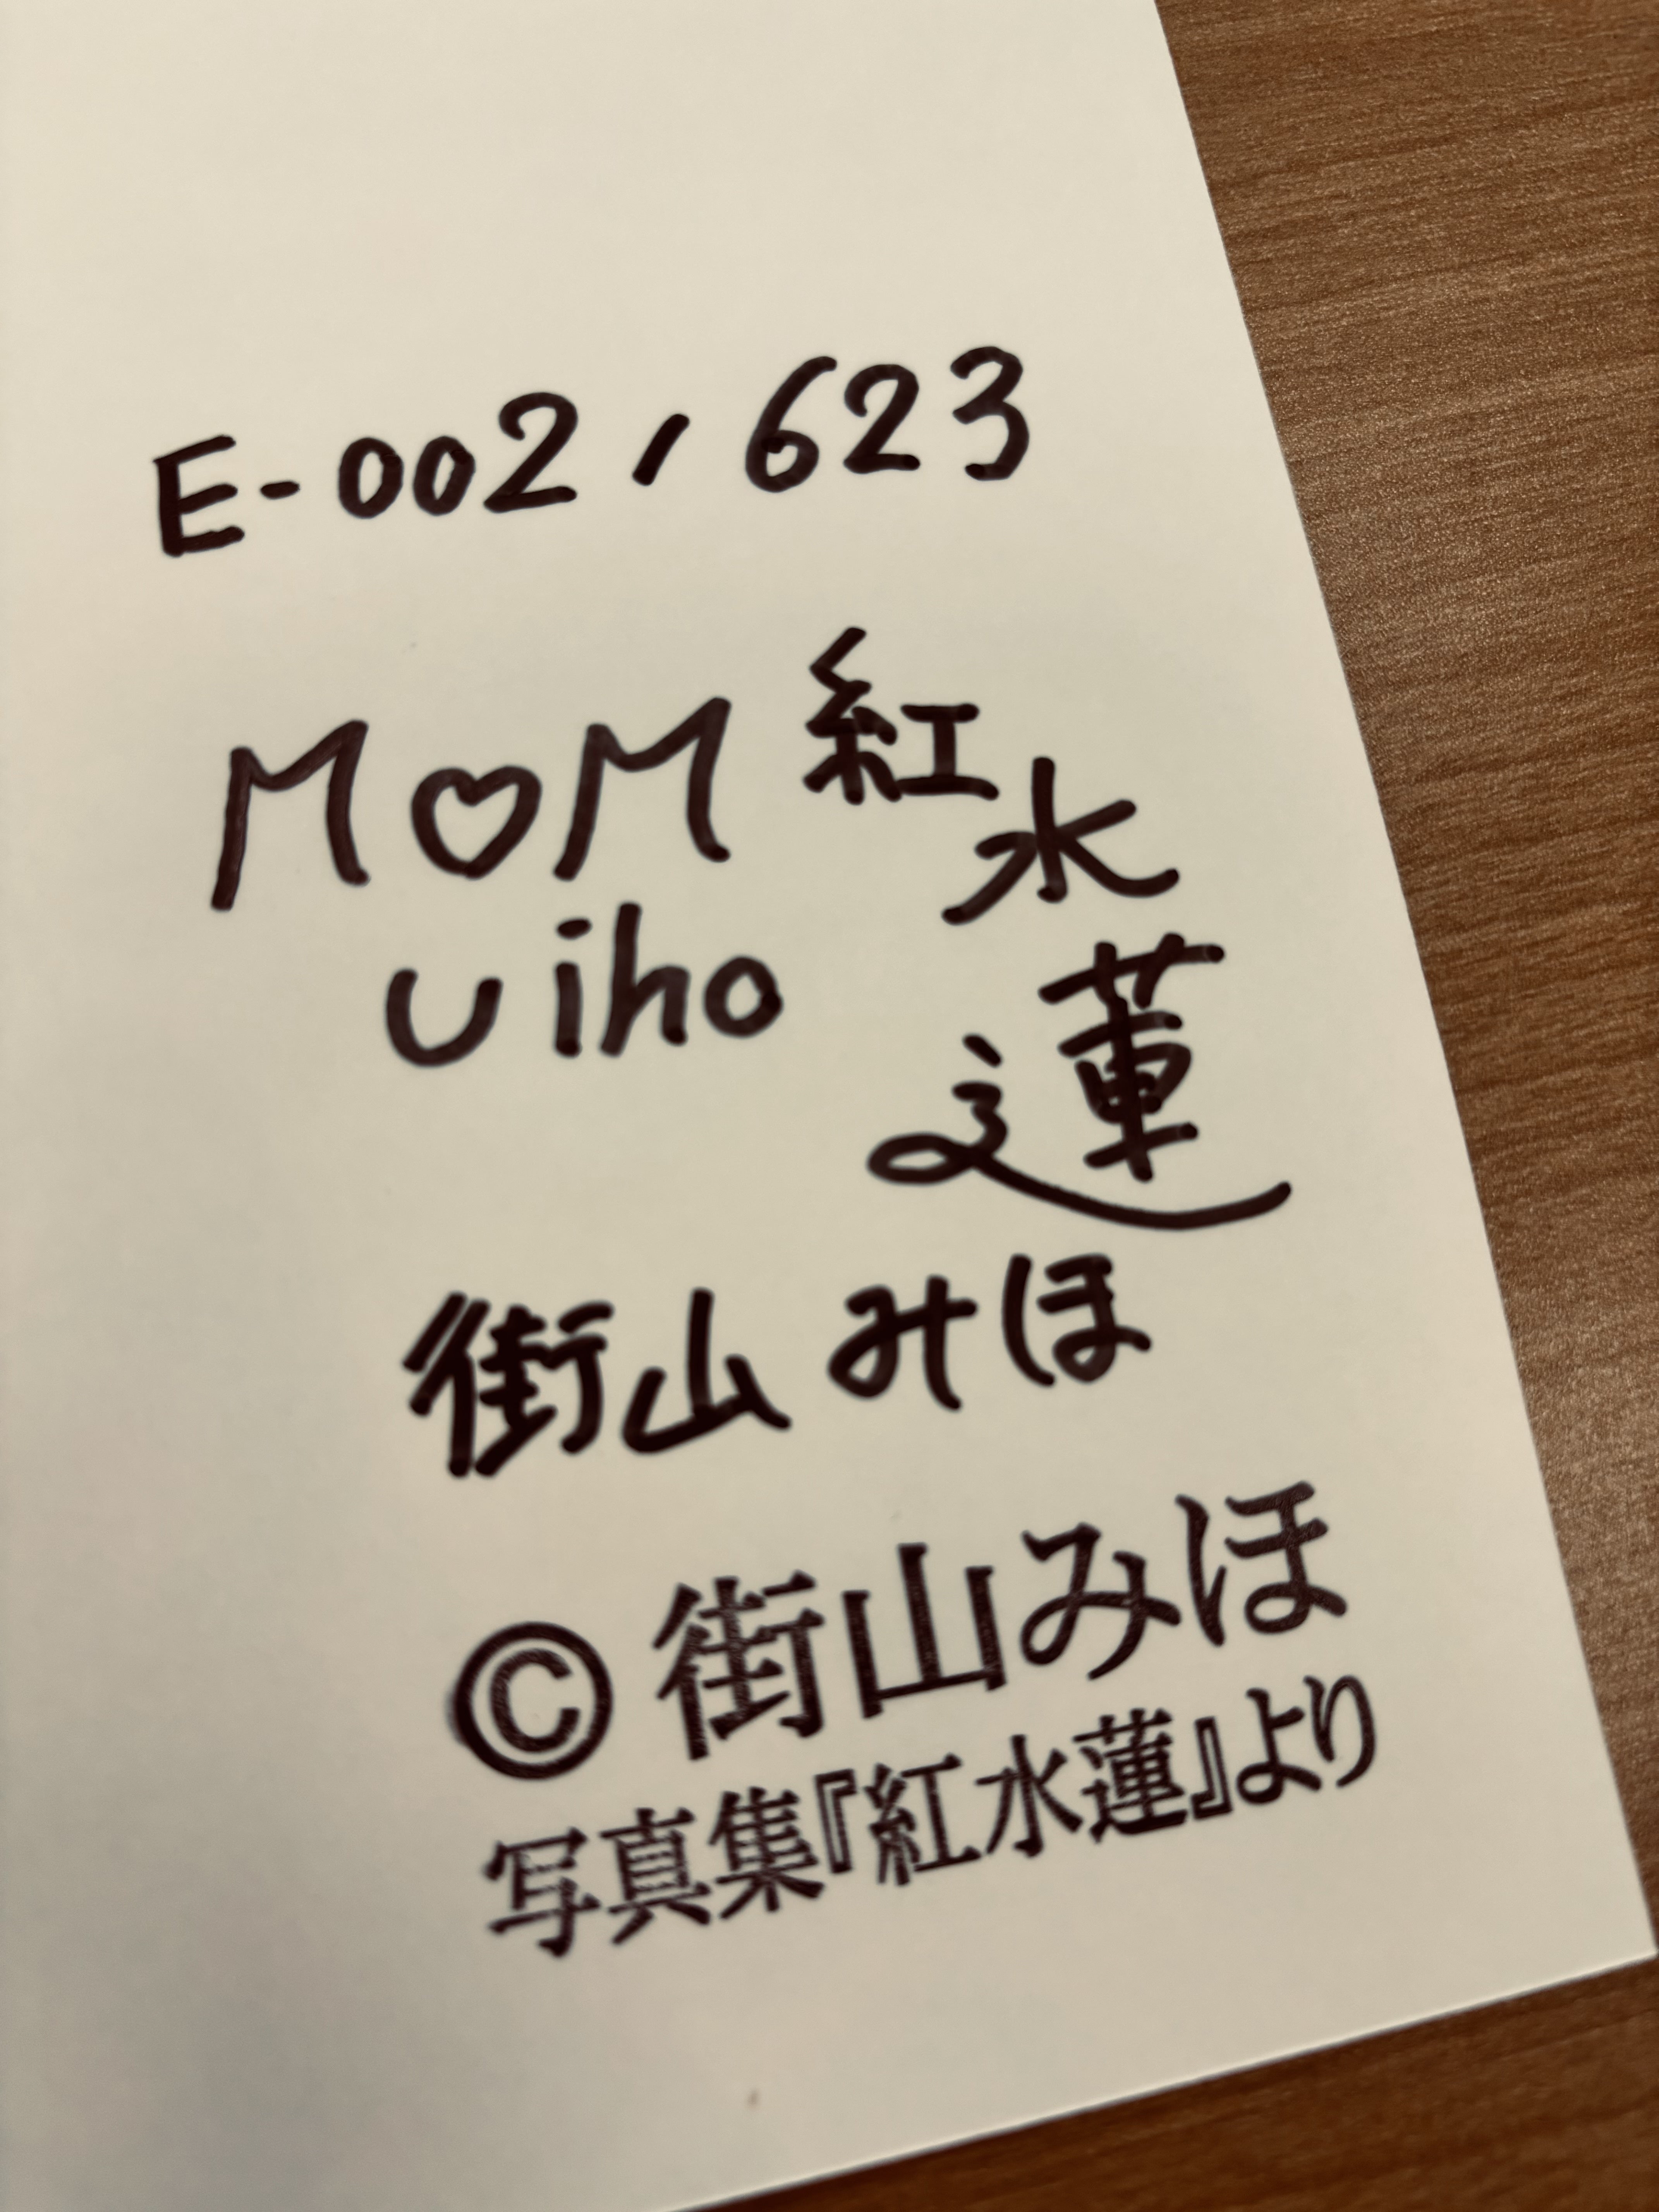 E-002, 623
M♡M
uiho
紅水蓮
街山みほ
© 街山みほ
写真集『紅水蓮』より